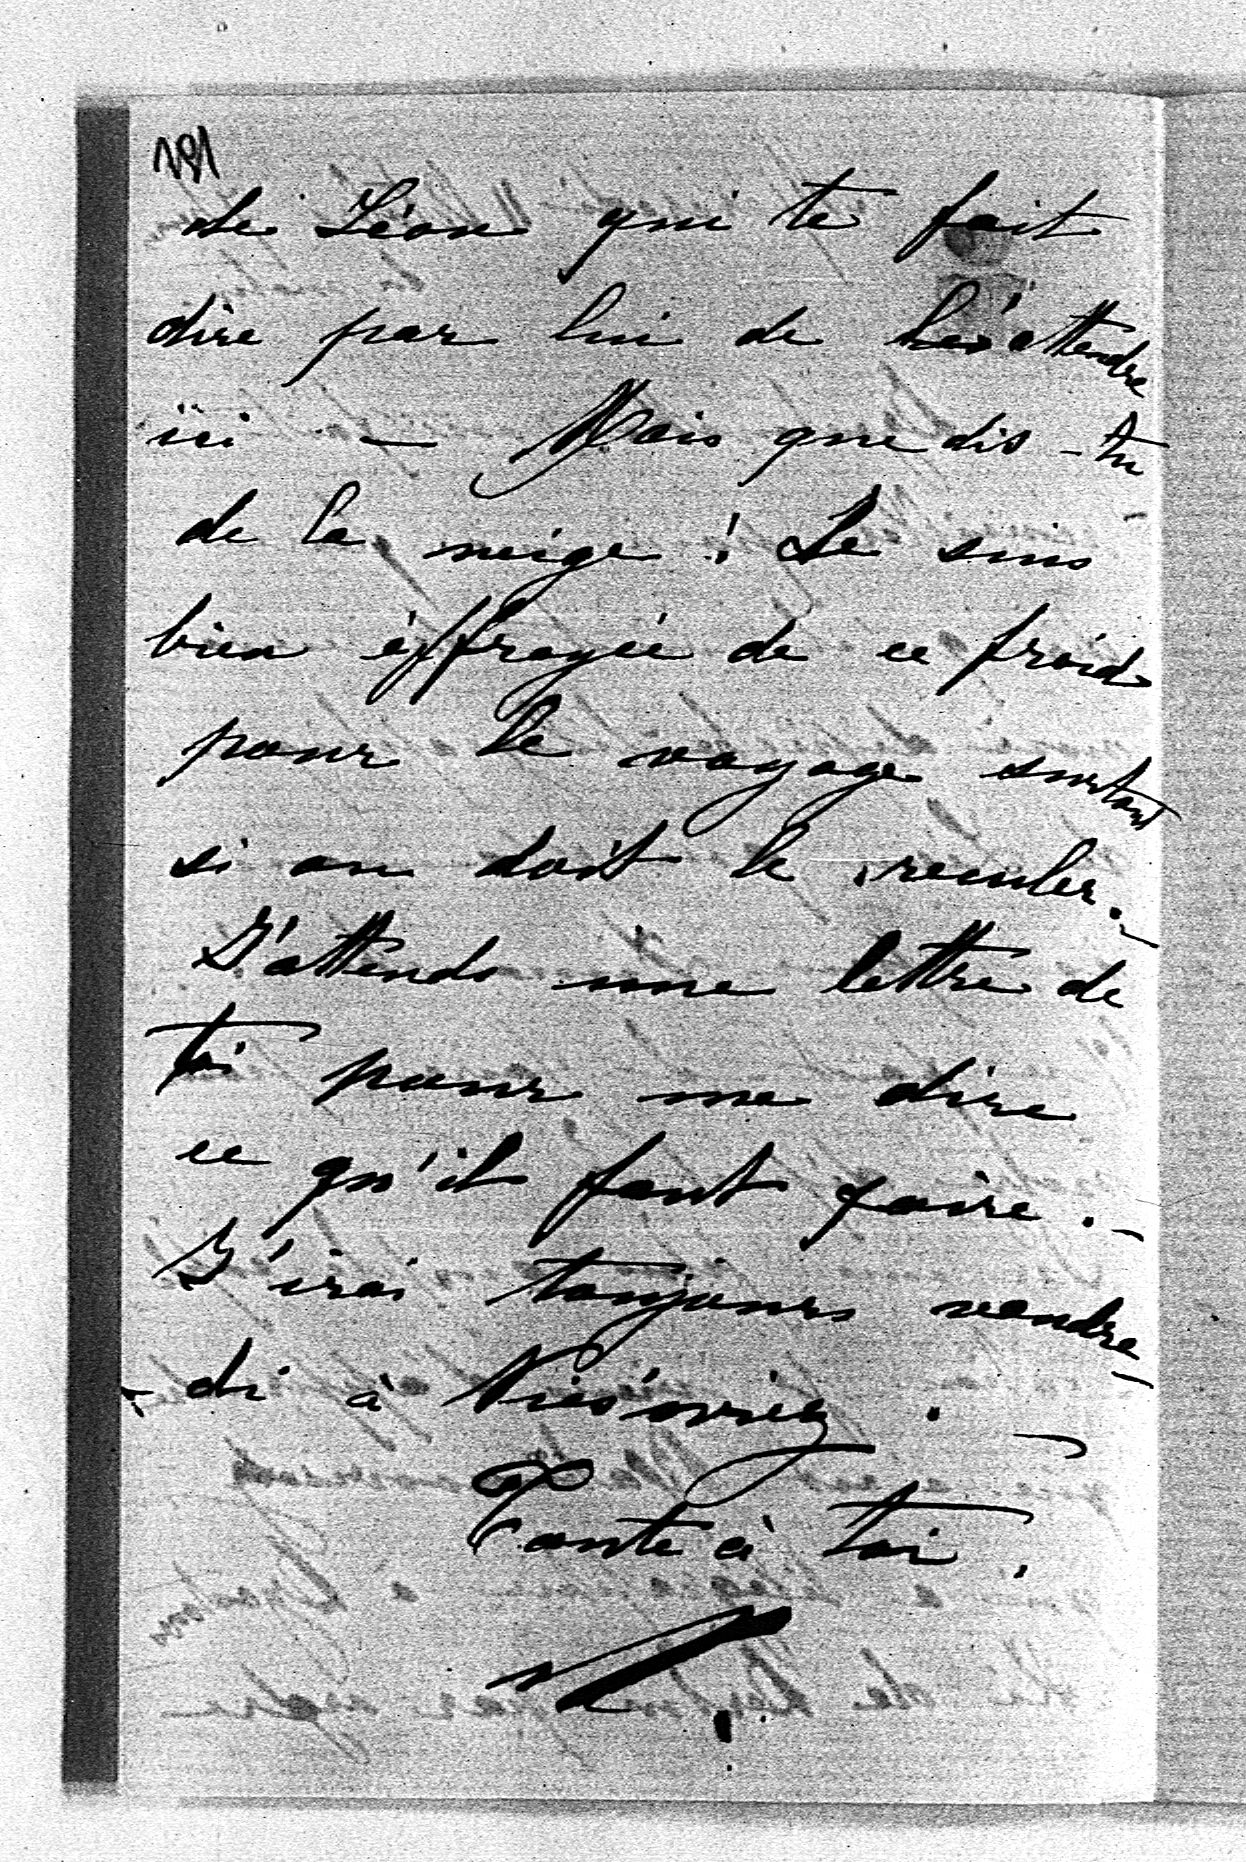 181
de Léon qui te fait
dire par lui de les attendre
ici — Mais que dis-tu
de la neige ! Je suis
bien éffrayée de ce froid
pour le voyage surtout
si on doit le reculer. —
J'attends une lettre de
toi pour me dire
ce qu'il faut faire. —
J'irai toujours vendre
- di à
Toute à toi.